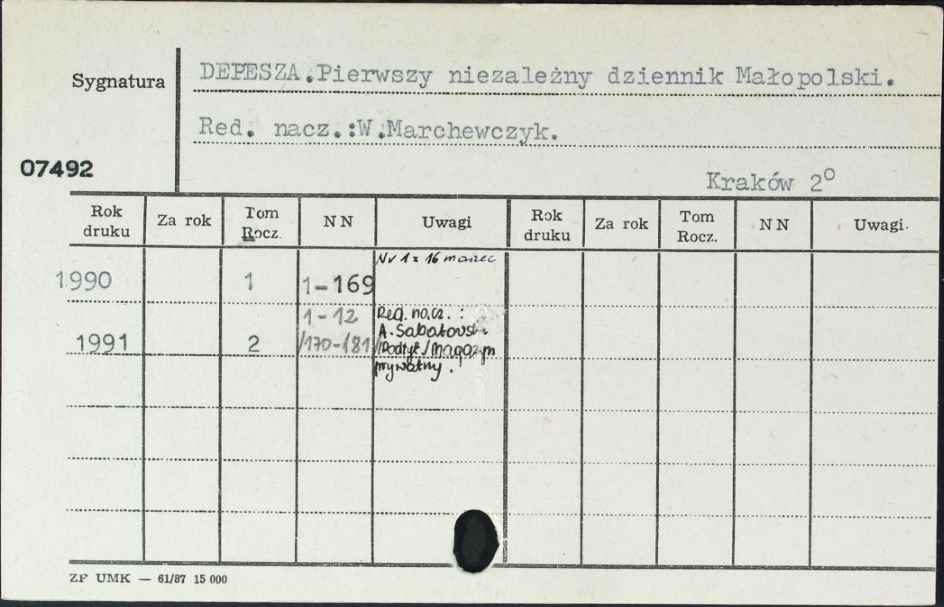 Sygnatura
DEPESZA.Pierwszy niezależny dziennik Małopolski.
Red. nacz.:W.Marchewczyk.
07492
Kraków 2°
Rok druku Za rok Tom Rocz. NN Uwagi Rok druku Za rok Tom Rocz. NN Uwagi.
Nr 1 z 16 marzec
1990 1 1-169
1-12 Red. nacz. :
A.Sabatowski
1991 2 /170-181/ /Podtyt./Magazyn
prywatny.
ZF UMK — 61/87 15 000